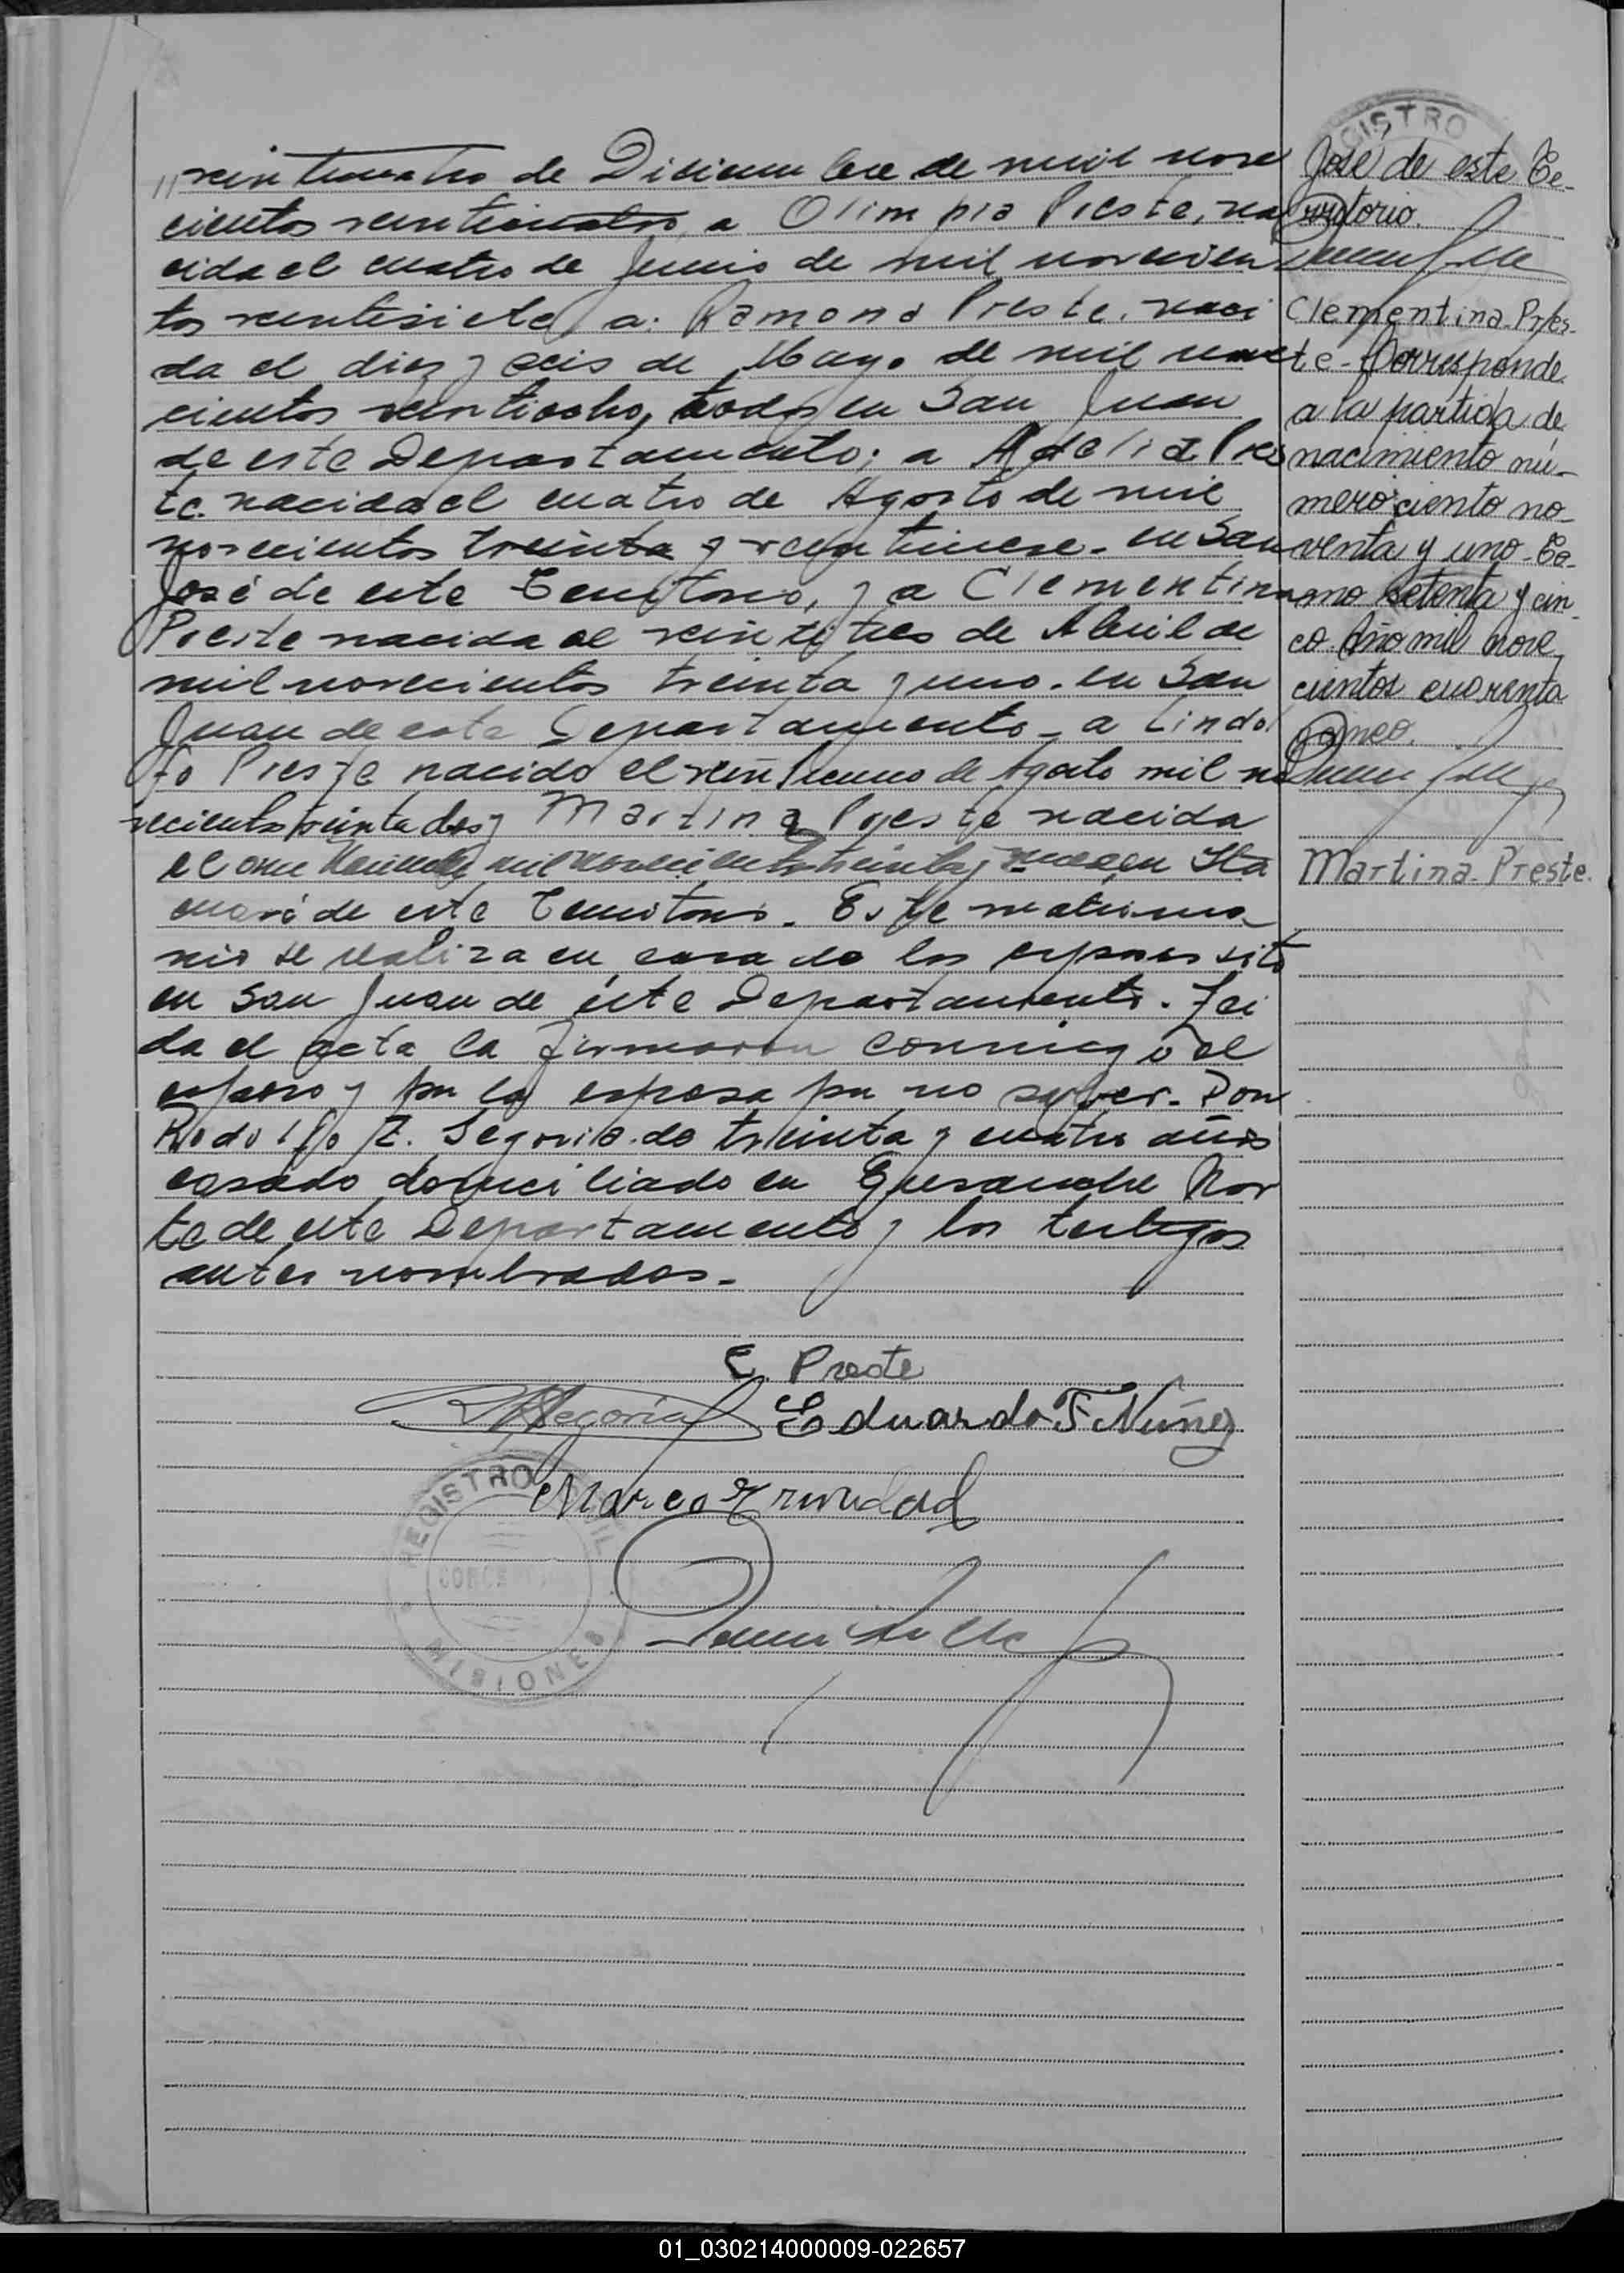 veinticuatro de Diciembre de mil nove
cientos veinticuatro, a Olimpia Preste, na
cida el cuatro de Junio de mil novecien
tos veintisiete, a Ramona Preste, naci
da el diez y seis de Mayo de mil nove
cientos veintiocho, todos en San Juan
de este Departamento; a Adelia Pres
te nacida el cuatro de Agosto de mil
novecientos treinta y en San
José de este Territorio, y a Clementina
Preste nacida el veintitres de Abril de
mil novecientos treinta y uno. en San
Juan de este Departamento - a Lindol
fo Preste nacido el veintiuno de Agosto mil no
vecientos treinta dos y Martina Preste nacida
el once mil novecientos treinta y en Ita
cuaré de este Territorio. Este matrimo
nio se realiza en casa de los esposos sito
en San Juan de este Departamento. Lei
da el acta la firmaron conmigo el
esposo y por la esposa por no saber. Don
Rodolfo Z. Segovia de treinta y cuatro años
casado domiciliado en Ensanche Nor
te de este Departamento y los testigos
antes nombrados.-
E. Preste
RZSegovia Eduardo F Núñez
Marco Trinidad
REGISTRO CIVIL
CONCEPCION
MISIONES
REGISTRO
José de este Te-
rritorio.
Clementina Pres-
te - Corresponde
a la partida de
nacimiento nú-
mero ciento no-
venta y uno - To-
mo setenta y cin
co. Año mil nove
cientos cuarenta
cinco.
Martina Preste.
01_030214000009-022657